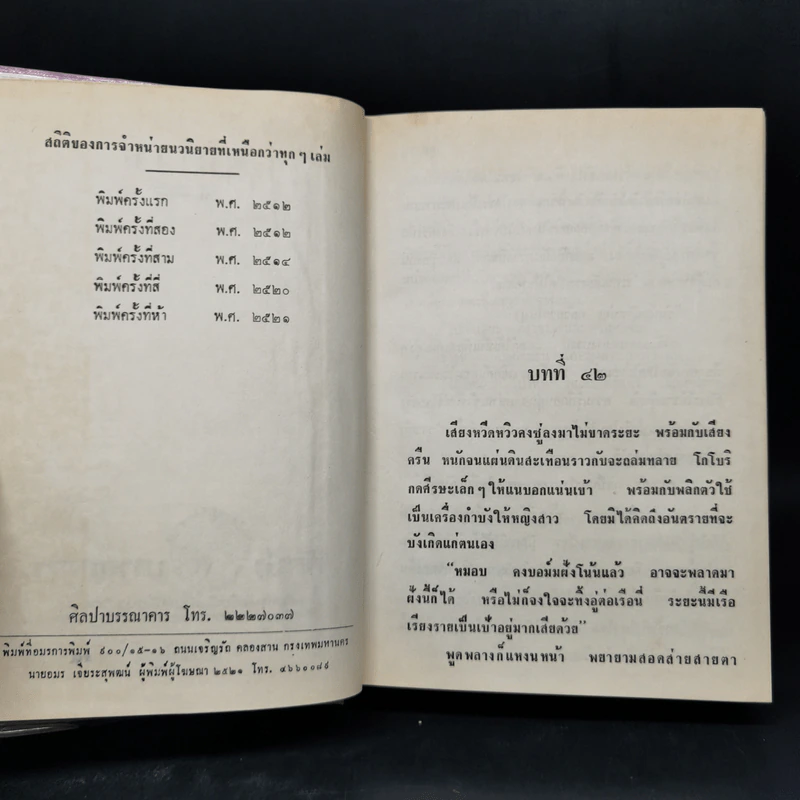 สถิติของการจำหน่ายนวนิยายที่เหนือกว่าทุก ๆ เล่ม
พิมพ์ครั้งแรก พ.ศ. ๒๕๑๒
พิมพ์ครั้งที่สอง พ.ศ. ๒๕๑๒
พิมพ์ครั้งที่สาม พ.ศ. ๒๕๑๔
พิมพ์ครั้งที่สี่ พ.ศ. ๒๕๒๐
พิมพ์ครั้งที่ห้า พ.ศ. ๒๕๒๑
ศิลปาบรรณาคาร โทร. ๒๒๒๗๐๓๗
พิมพ์ที่อมรการพิมพ์ ๙๐๐/๑๕-๑๖ ถนนเจริญรัถ คลองสาน กรุงเทพมหานคร
นายอมร เจียระสุพฒน์ ผู้พิมพ์ผู้โฆษณา ๒๕๒๑ โทร. ๔๖๖๐๐๘๙
บทที่ ๔๒
เสียงหวีดหวิวคงชู่ลงมาไม่ขาดระยะ พร้อมกับเสียง
ครืน หนักจนแผ่นดินสะเทือนราวกับจะถล่มทลาย โกโบริ
กดศีรษะเล็ก ๆ ให้แนบอกแน่นเข้า พร้อมกับพลิกตัวใช้
เป็นเครื่องกำบังให้หญิงสาว โดยมิได้คิดถึงอันตรายที่จะ
บังเกิดแก่ตนเอง
“หมอบ คงบอม์มฝั่งโน้นแล้ว อาจจะพลาดมา
ฝั่งนี้ก็ได้ หรือไม่ก็จงใจจะทิ้งอู่ต่อเรือนี่ ระยะนี้มีเรือ
เรียงรายเป็นเป้าอยู่มากเสียด้วย”
พูดพลางก็แหงนหน้า พยายามสอดส่ายสายตา